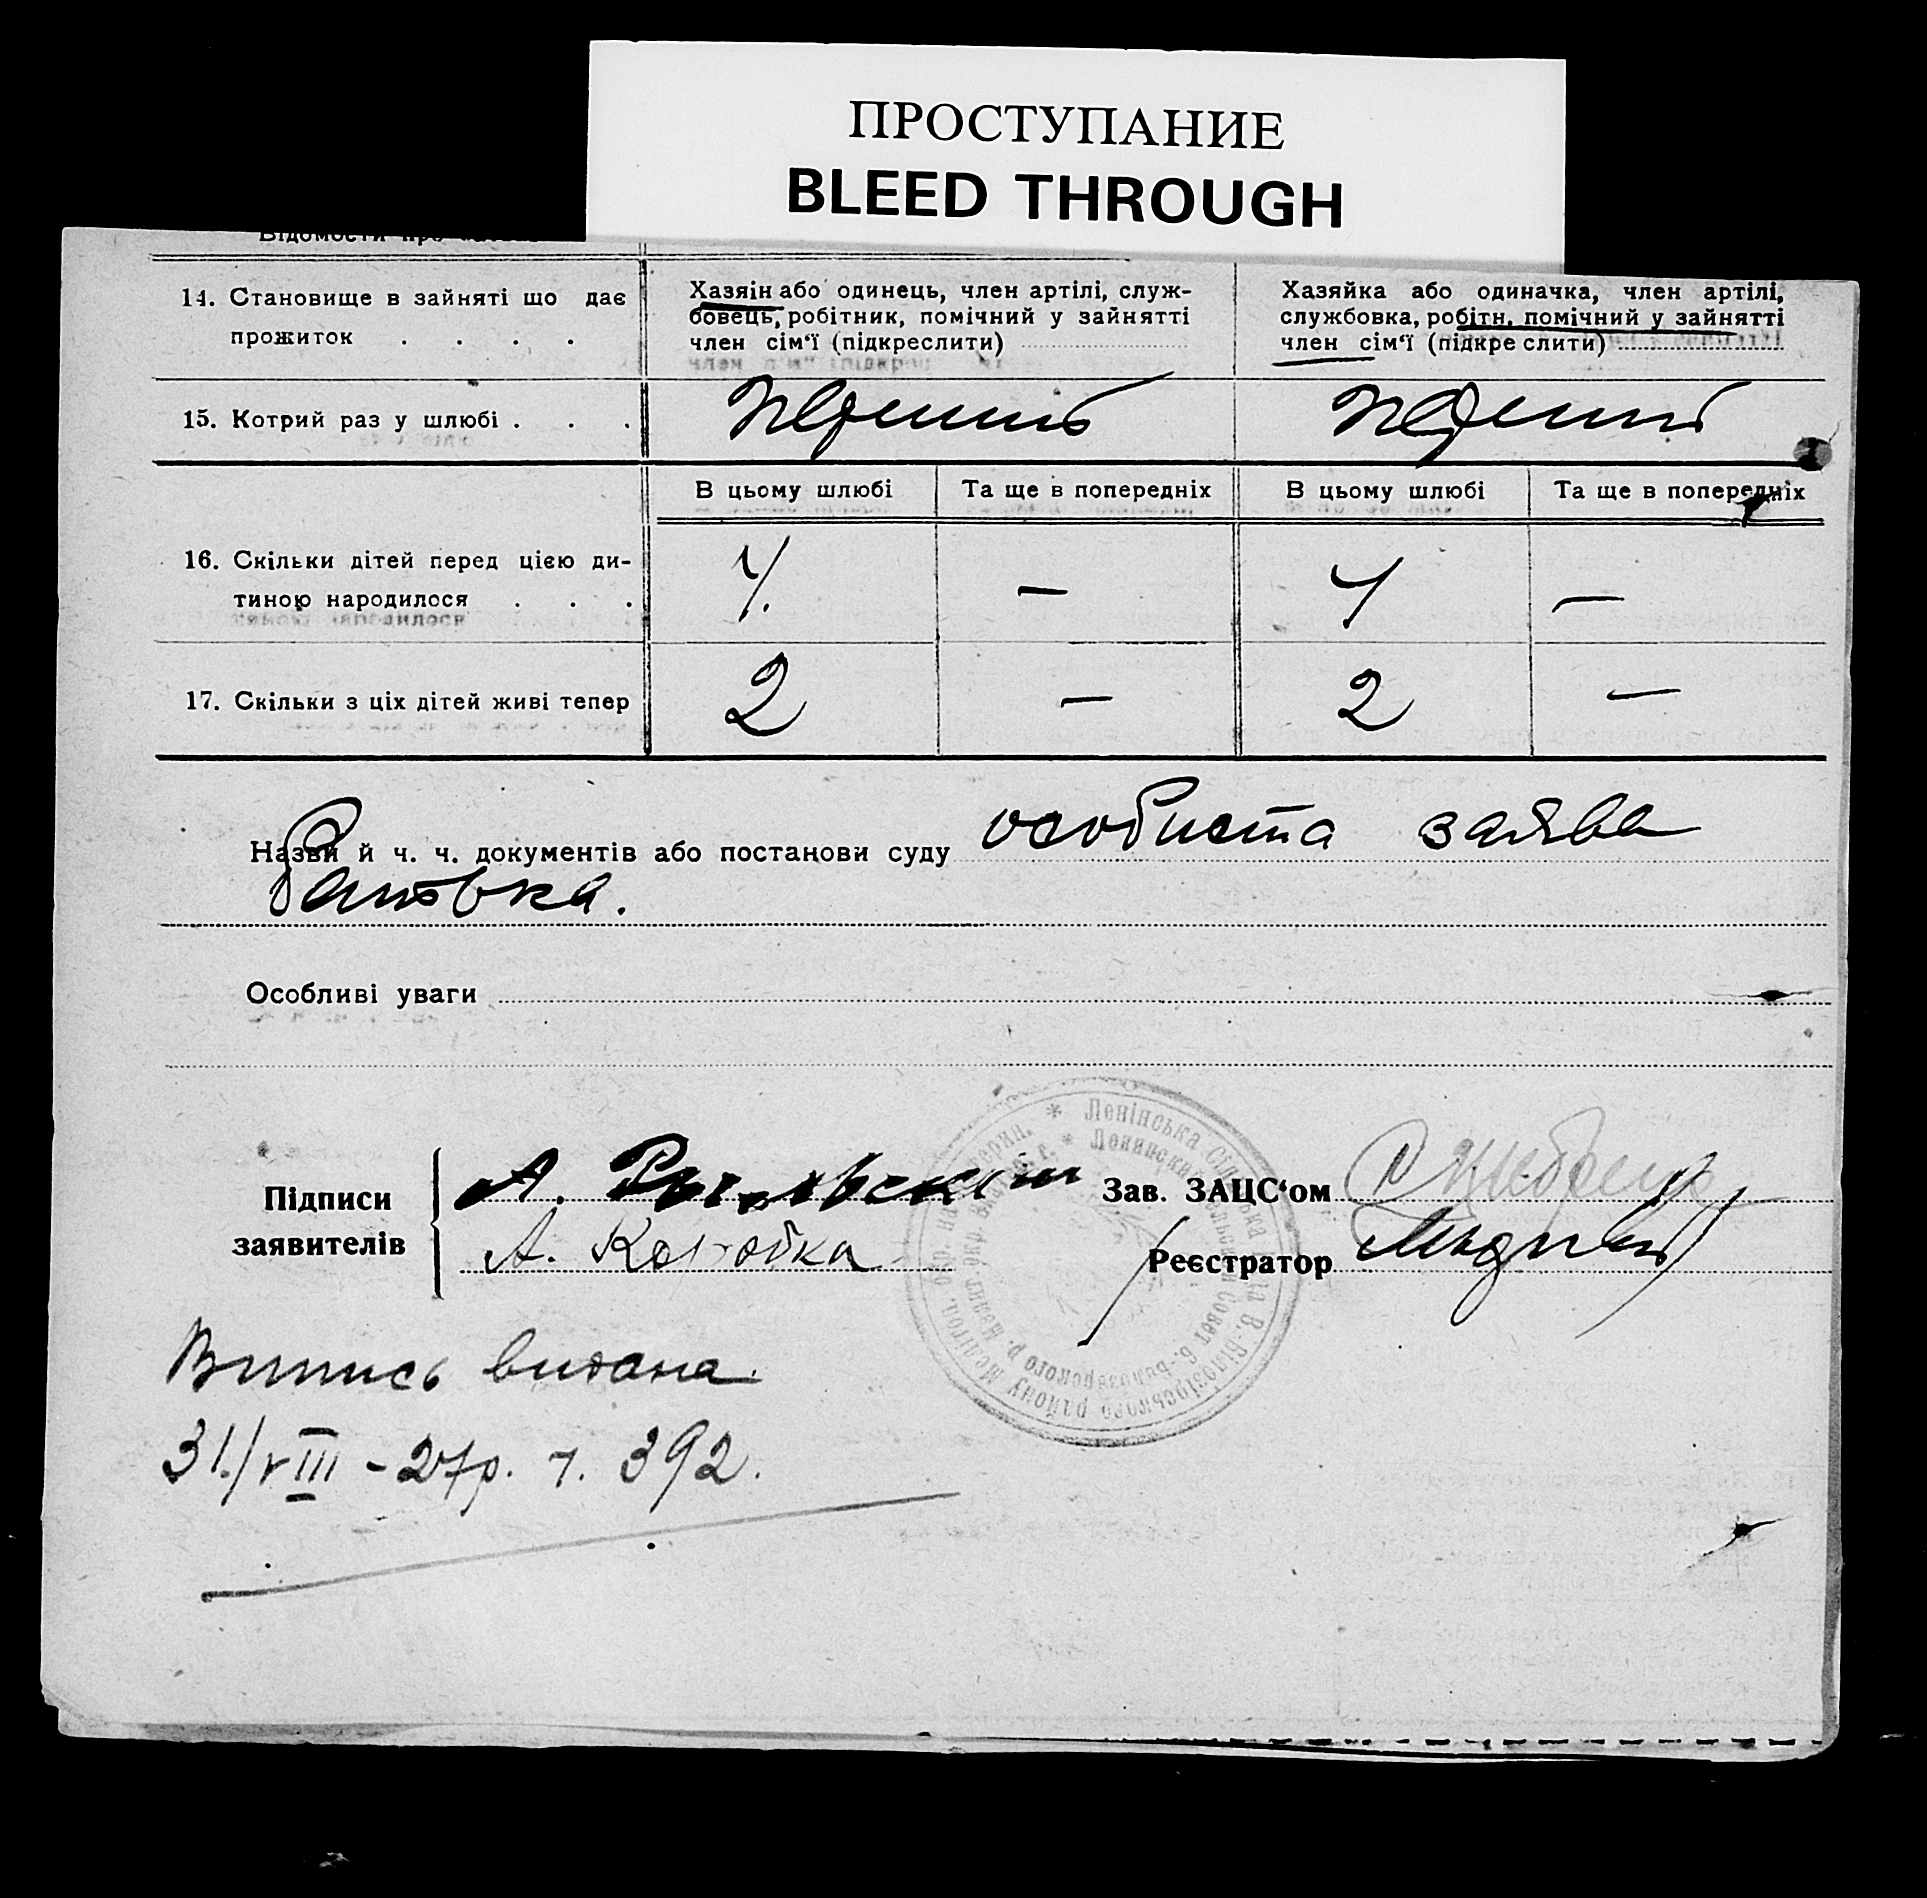 ПРОСТУПАНИЕ
BLEED THROUGH
14. Становище в зайняті що дає
прожиток . . . .
Хазяін або одинець, член артілі, служ-
бовець, робітник, помічний у зайнятті
член сім‘ї (підкреслити)
Хазяйка або одиначка, член артілі,
службовка, робітн. помічний у зайнятті
член сім‘ї (підкреслити)
15. Котрий раз у шлюбі . . .
В цьому шлюбі
Та ще в попередніх
В цьому шлюбі
Та ще в попередніх
16. Скільки дітей перед цією ди-
тиною народилося . . .
—
—
17. Скільки з ціх дітей живі тепер
2
—
2
—
Назви й ч. ч. документів або постанови суду особиста заява
батька.
Особливі уваги
Підписи
заявителів
А. Рыльський
А. Коробка
Зав. ЗАЦС‘ом
Реєстратор
Ленінська Сільська Рада В.-Білозірського району Мелітоп. окр.
Випись видана.
31/VIII - 27р. ч. 392.